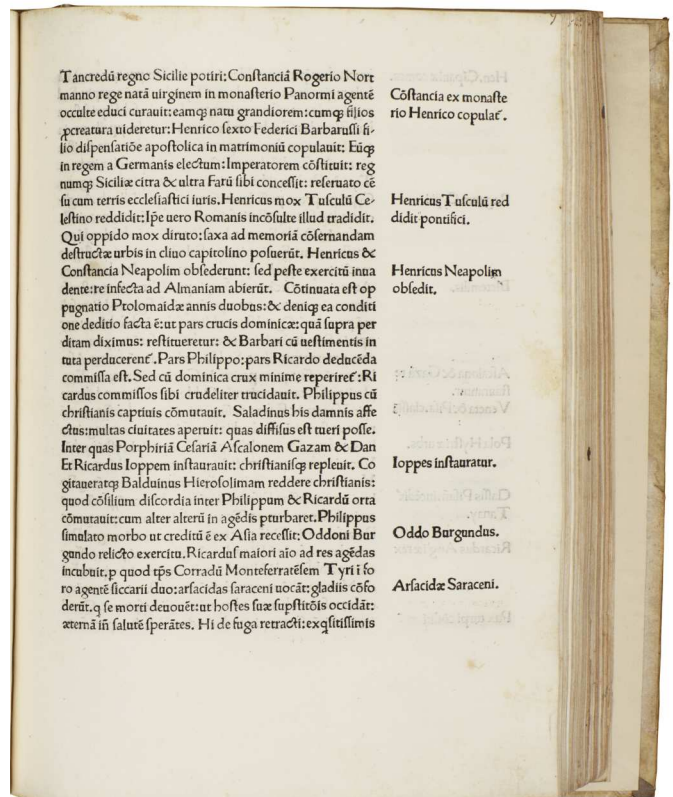 Tancredū regno Sicilie potiri: Conſtanciā Rogerio Nort
manno rege natā uirginem in monaſterio Panormi agentē
occulte educi curauit: eamqꝫ natu grandiorem: cumqꝫ filios
ꝓcreatura uideretur: Henrico ſexto Federici Barbaruſſi fi-
lio diſpenſatiōe apoſtolica in matrimoniū copulauit: Eūqꝫ
in regem a Germanis electum: Imperatorem cōſtituit: reg
numqꝫ Siciliæ citra & ultra Farū ſibi conceſſit: reſeruato cē
ſu cum terris eccleſiaſtici iuris. Henricus mox Tuſculū Ce-
leſtino reddidit: Ipſe uero Romanis incōſulte illud tradidit.
Qui oppido mox diruto: ſaxa ad memoriā cōſernandam
deſtructæ urbis in cliuo capitolino poſuerūt. Henricus &
Conſtancia Neapolim obſederunt: ſed peſte exercitū inua
dente: re infecta ad Almaniam abierūt. Cōtinuata eſt op
pugnatio Ptolomaidæ annis duobus: & deniqꝫ ea conditi
one deditio facta ē: ut pars crucis dominicæ: quā ſupra per
ditam diximus: reſtitueretur: & Barbari cū ueſtimentis in
tuta perducerent᷑. Pars Philippo: pars Ricardo deducēda
commiſſa eſt. Sed cū dominica crux minime reperiret᷑: Ri
cardus commiſſos ſibi crudeliter trucidauit. Philippus cū
chriſtianis captiuis cōmutauit. Saladinus his damnis affe
ctus: multas ciuitates aperuit: quas diffiſus eſt tueri poſſe.
Inter quas Porphiriā Ceſariā Aſcalonem Gazam & Dan
Et Ricardus Ioppem inſtaurauit: chriſtianiſqꝫ repleuit. Co
gitaueratqꝫ Balduinus Hieroſolimam reddere chriſtianis:
quod cōſilium diſcordia inter Philippum & Ricardū orta
cōmutauit: cum alter alterū in agēdis pturbaret. Philippus
ſimulato morbo ut creditū ē ex Aſia receſſit: Oddoni Bur
gundo relicto exercitu. Ricarduſ maiori aīo ad res agēdas
incubuit. p quod tp̄s Corradū Monteferratēſem Tyri ī fo
ro agentē ſiccarii duo: arſacidas ſaraceni uocāt: gladiis cōfo
derūt. q ſe morti deuouēt: ut hoſtes ſuæ ſupſtitōis occidāt:
æternā iñ ſalutē ſperātes. Hi de fuga retracti: exqſitiſſimis
Cōſtancia ex monaſte
rio Henrico copulat᷑.
Henricus Tuſculū red
didit pontifici.
Henricus Neapolim
obſedit.
Ioppes inſtauratur.
Oddo Burgundus.
Arſacidæ Saraceni.